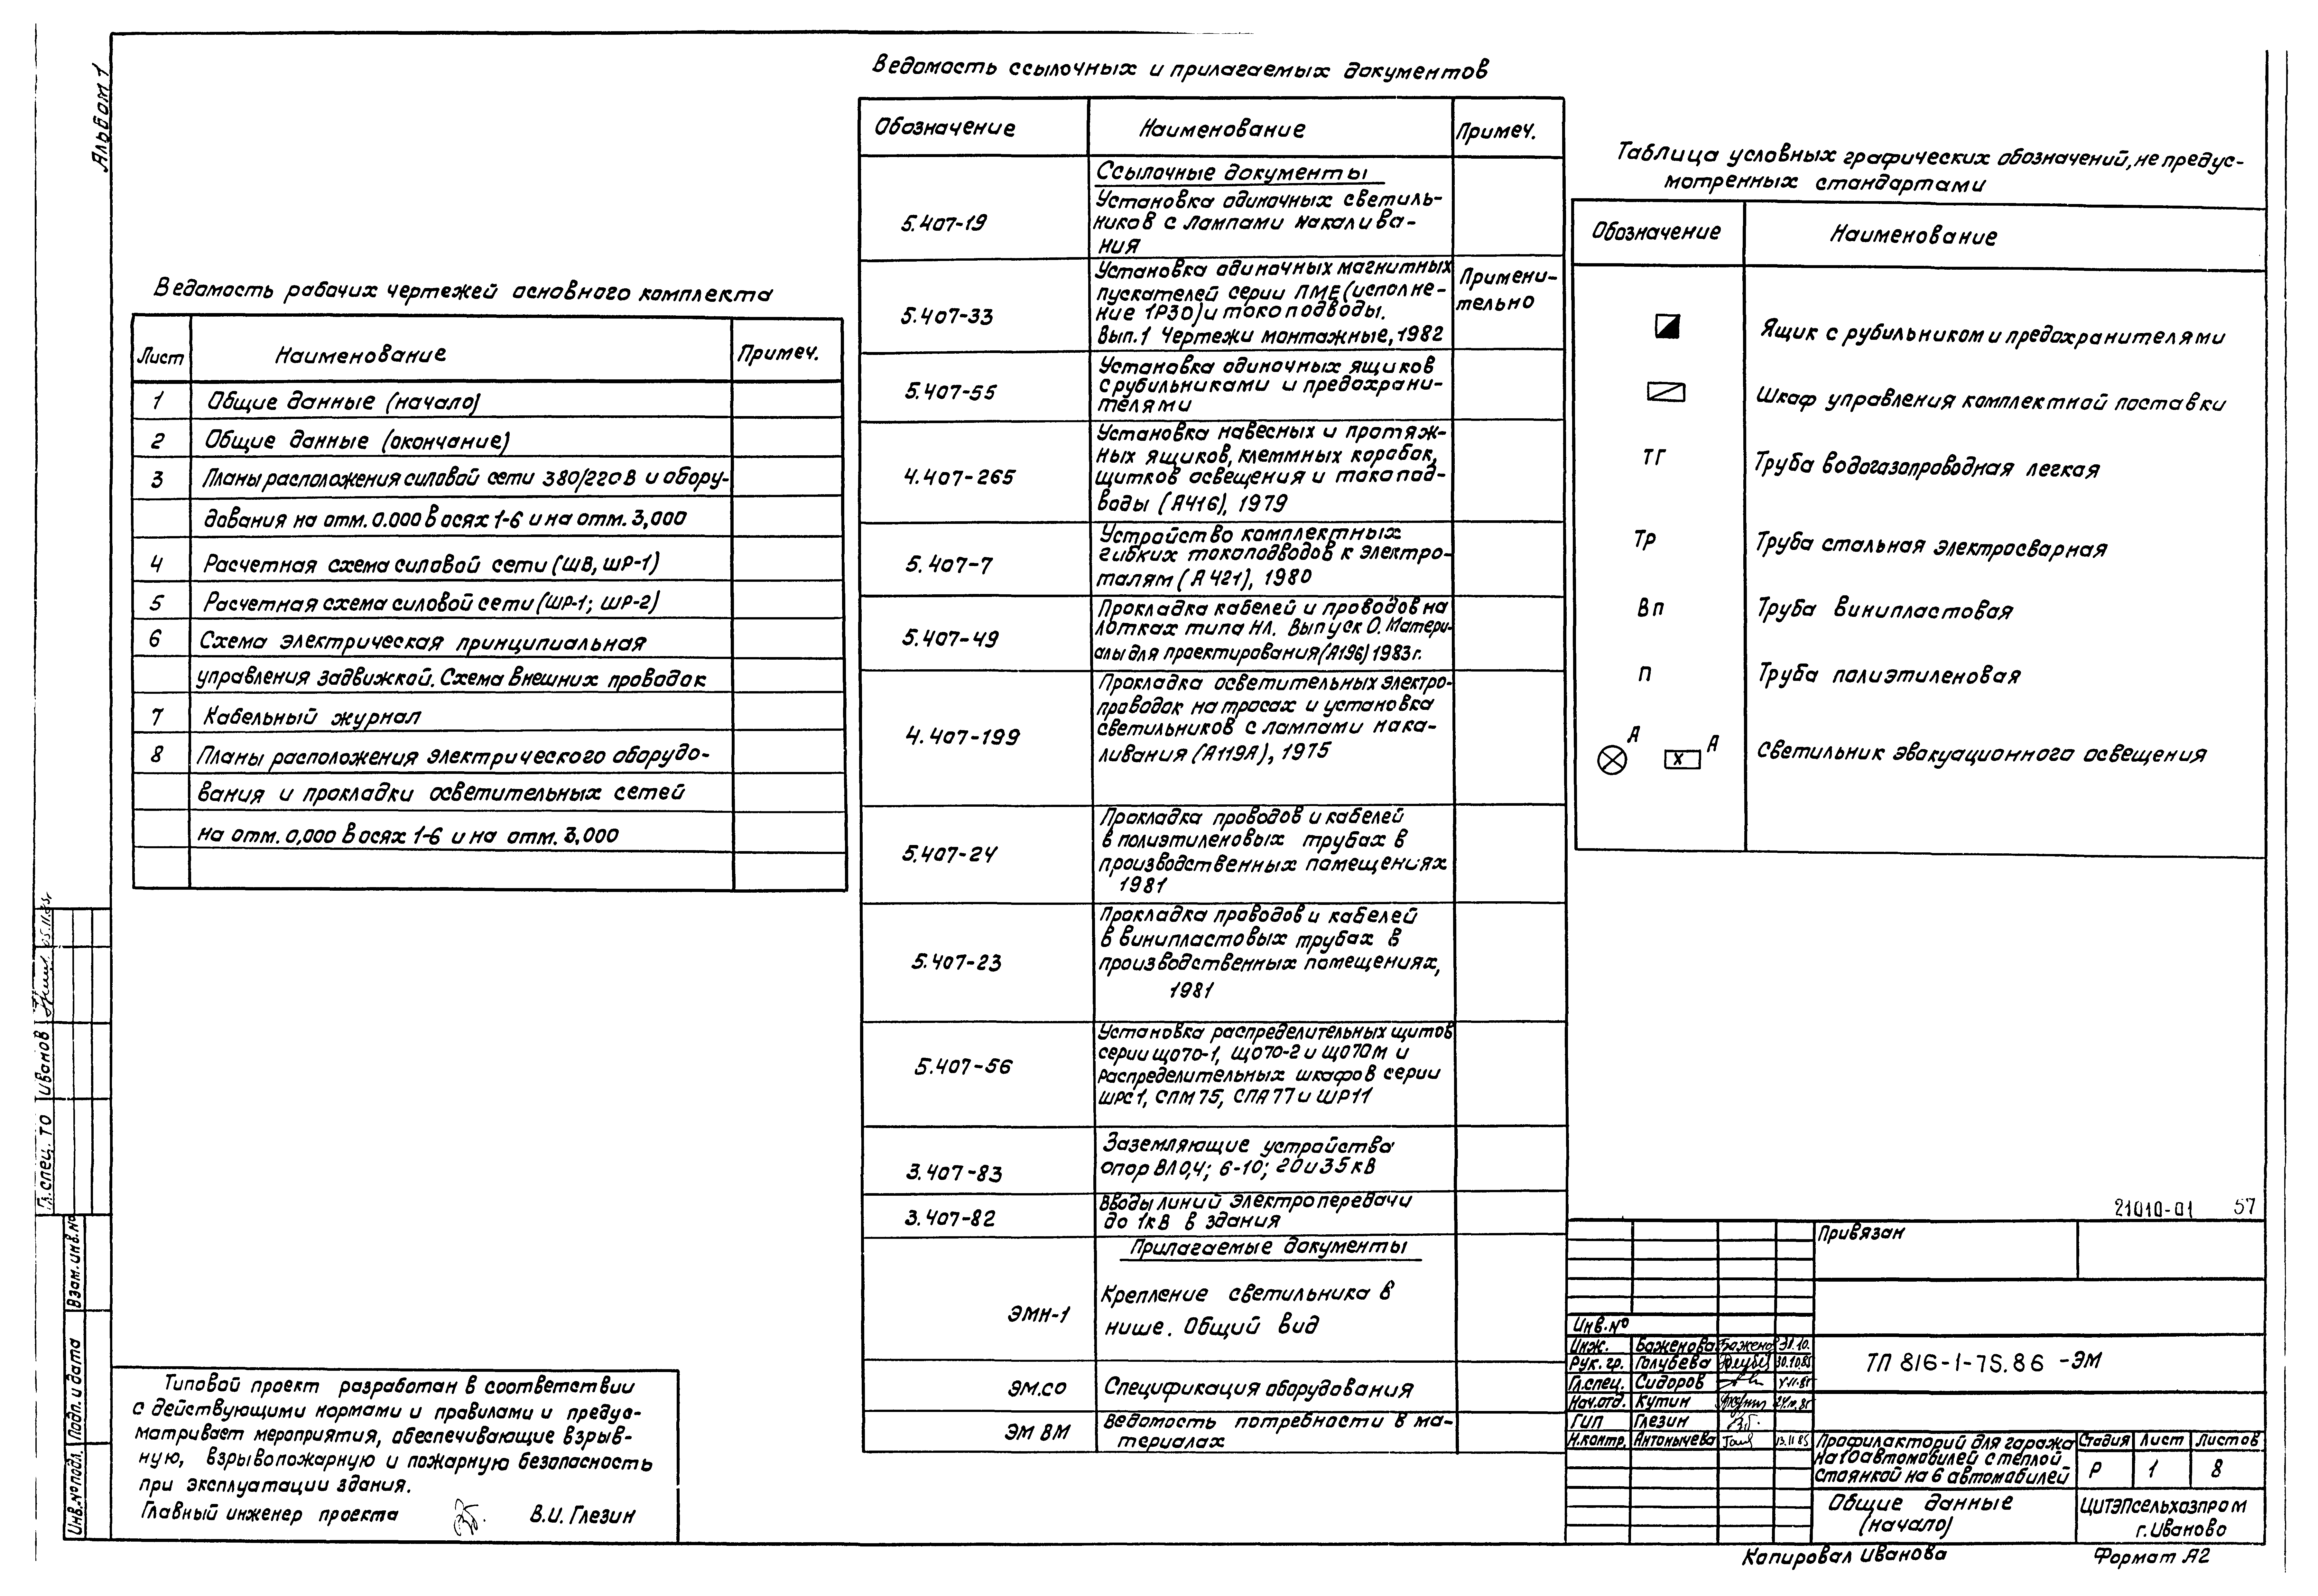 Альбом 1
Ведомость рабочих чертежей основного комплекта
Лист Наименование Примеч.
1 Общие данные (начало)
2 Общие данные (окончание)
3 Планы расположения силовой сети 380/220В и обору-
дования на отм. 0.000 в осях 1-6 и на отм. 3,000
4 Расчетная схема силовой сети (ШВ, ШР-1)
5 Расчетная схема силовой сети (ШР-1; ШР-2)
6 Схема электрическая принципиальная
управления задвижкой. Схема внешних проводок
7 Кабельный журнал
8 Планы расположения электрического оборудо-
вания и прокладки осветительных сетей
на отм. 0,000 в осях 1-6 и на отм. 3,000
Типовой проект разработан в соответствии
с действующими нормами и правилами и преду-
матривает мероприятия, обеспечивающие взрыв-
ную, взрывопожарную и пожарную безопасность
при эксплуатации здания.
Главный инженер проекта В.И. Глезин
Ведомость ссылочных и прилагаемых документов
Обозначение Наименование Примеч.
Ссылочные документы
5.407-19 Установка одиночных светиль-
ников с лампами накалива-
ния
5.407-33 Установка одиночных магнитных Примени-
пускателей серии ПМЕ (исполне- тельно
ние 1Р30) и токоподводы.
Вып.1 Чертежи монтажные, 1982
5.407-55 Установка одиночных ящиков
с рубильниками и предохрани-
телями
4.407-265 Установка навесных и протяж-
ных ящиков, клеммных коробок,
щитков освещения и токопод-
воды (А416), 1979
5.407-7 Устройство комплектных
гибких токоподводов к электро-
талям (А421), 1980
5.407-49 Прокладка кабелей и проводов на
лотках типа НЛ. Выпуск 0. Матери-
алы для проектирования (А196) 1983г.
4.407-199 Прокладка осветительных электро-
проводок на тросах и установка
светильников с лампами нака-
ливания (А119А), 1975
5.407-24 Прокладка проводов и кабелей
в полиэтиленовых трубах в
производственных помещениях
1981
5.407-23 Прокладка проводов и кабелей
в винипластовых трубах в
производственных помещениях,
1981
5.407-56 Установка распределительных щитов
серии ЩО70-1, ЩО70-2 и ЩО70М и
распределительных шкафов серии
ШРС1, СПМ75, СПА77 и ШР11
3.407-83 Заземляющие устройства
опор ВЛ0,4; 6-10; 20 и 35 кВ
3.407-82 Вводы линий электропередачи
до 1кВ в здания
Прилагаемые документы
ЭМН-1 Крепление светильника в
нише. Общий вид
ЭМ.СО Спецификация оборудования
ЭМ ВМ Ведомость потребности в ма-
териалах
Таблица условных графических обозначений, не предус-
мотренных стандартами
Обозначение Наименование
Ящик с рубильником и предохранителями
Шкаф управления комплектной поставки
ТГ Труба водогазопроводная легкая
Тр Труба стальная электросварная
Вп Труба винипластовая
П Труба полиэтиленовая
А X А Светильник эвакуационного освещения
21010-01 57
Привязан
Инв.№
Инж. Баженова 30.10.
Рук. гр. Голубева 30.10.85
Гл.спец. Сидоров
Нач.отд. Кутин
ГИП Глезин
Н.контр. Антонычева 13.11.85
ТП 816-1-75.86 -ЭМ
Профилакторий для гаража
на 10 автомобилей с теплой
стоянкой на 6 автомобилей
Стадия Лист Листов
Р 1 8
Общие данные
(начало)
ЦИТЭПсельхозпром
г.Иваново
Копировал Иванова Формат А2
Гл. спец. ТО Иванов 05.11.85г
Взам. инв.№
Подп. и дата
Инв.№ подл.